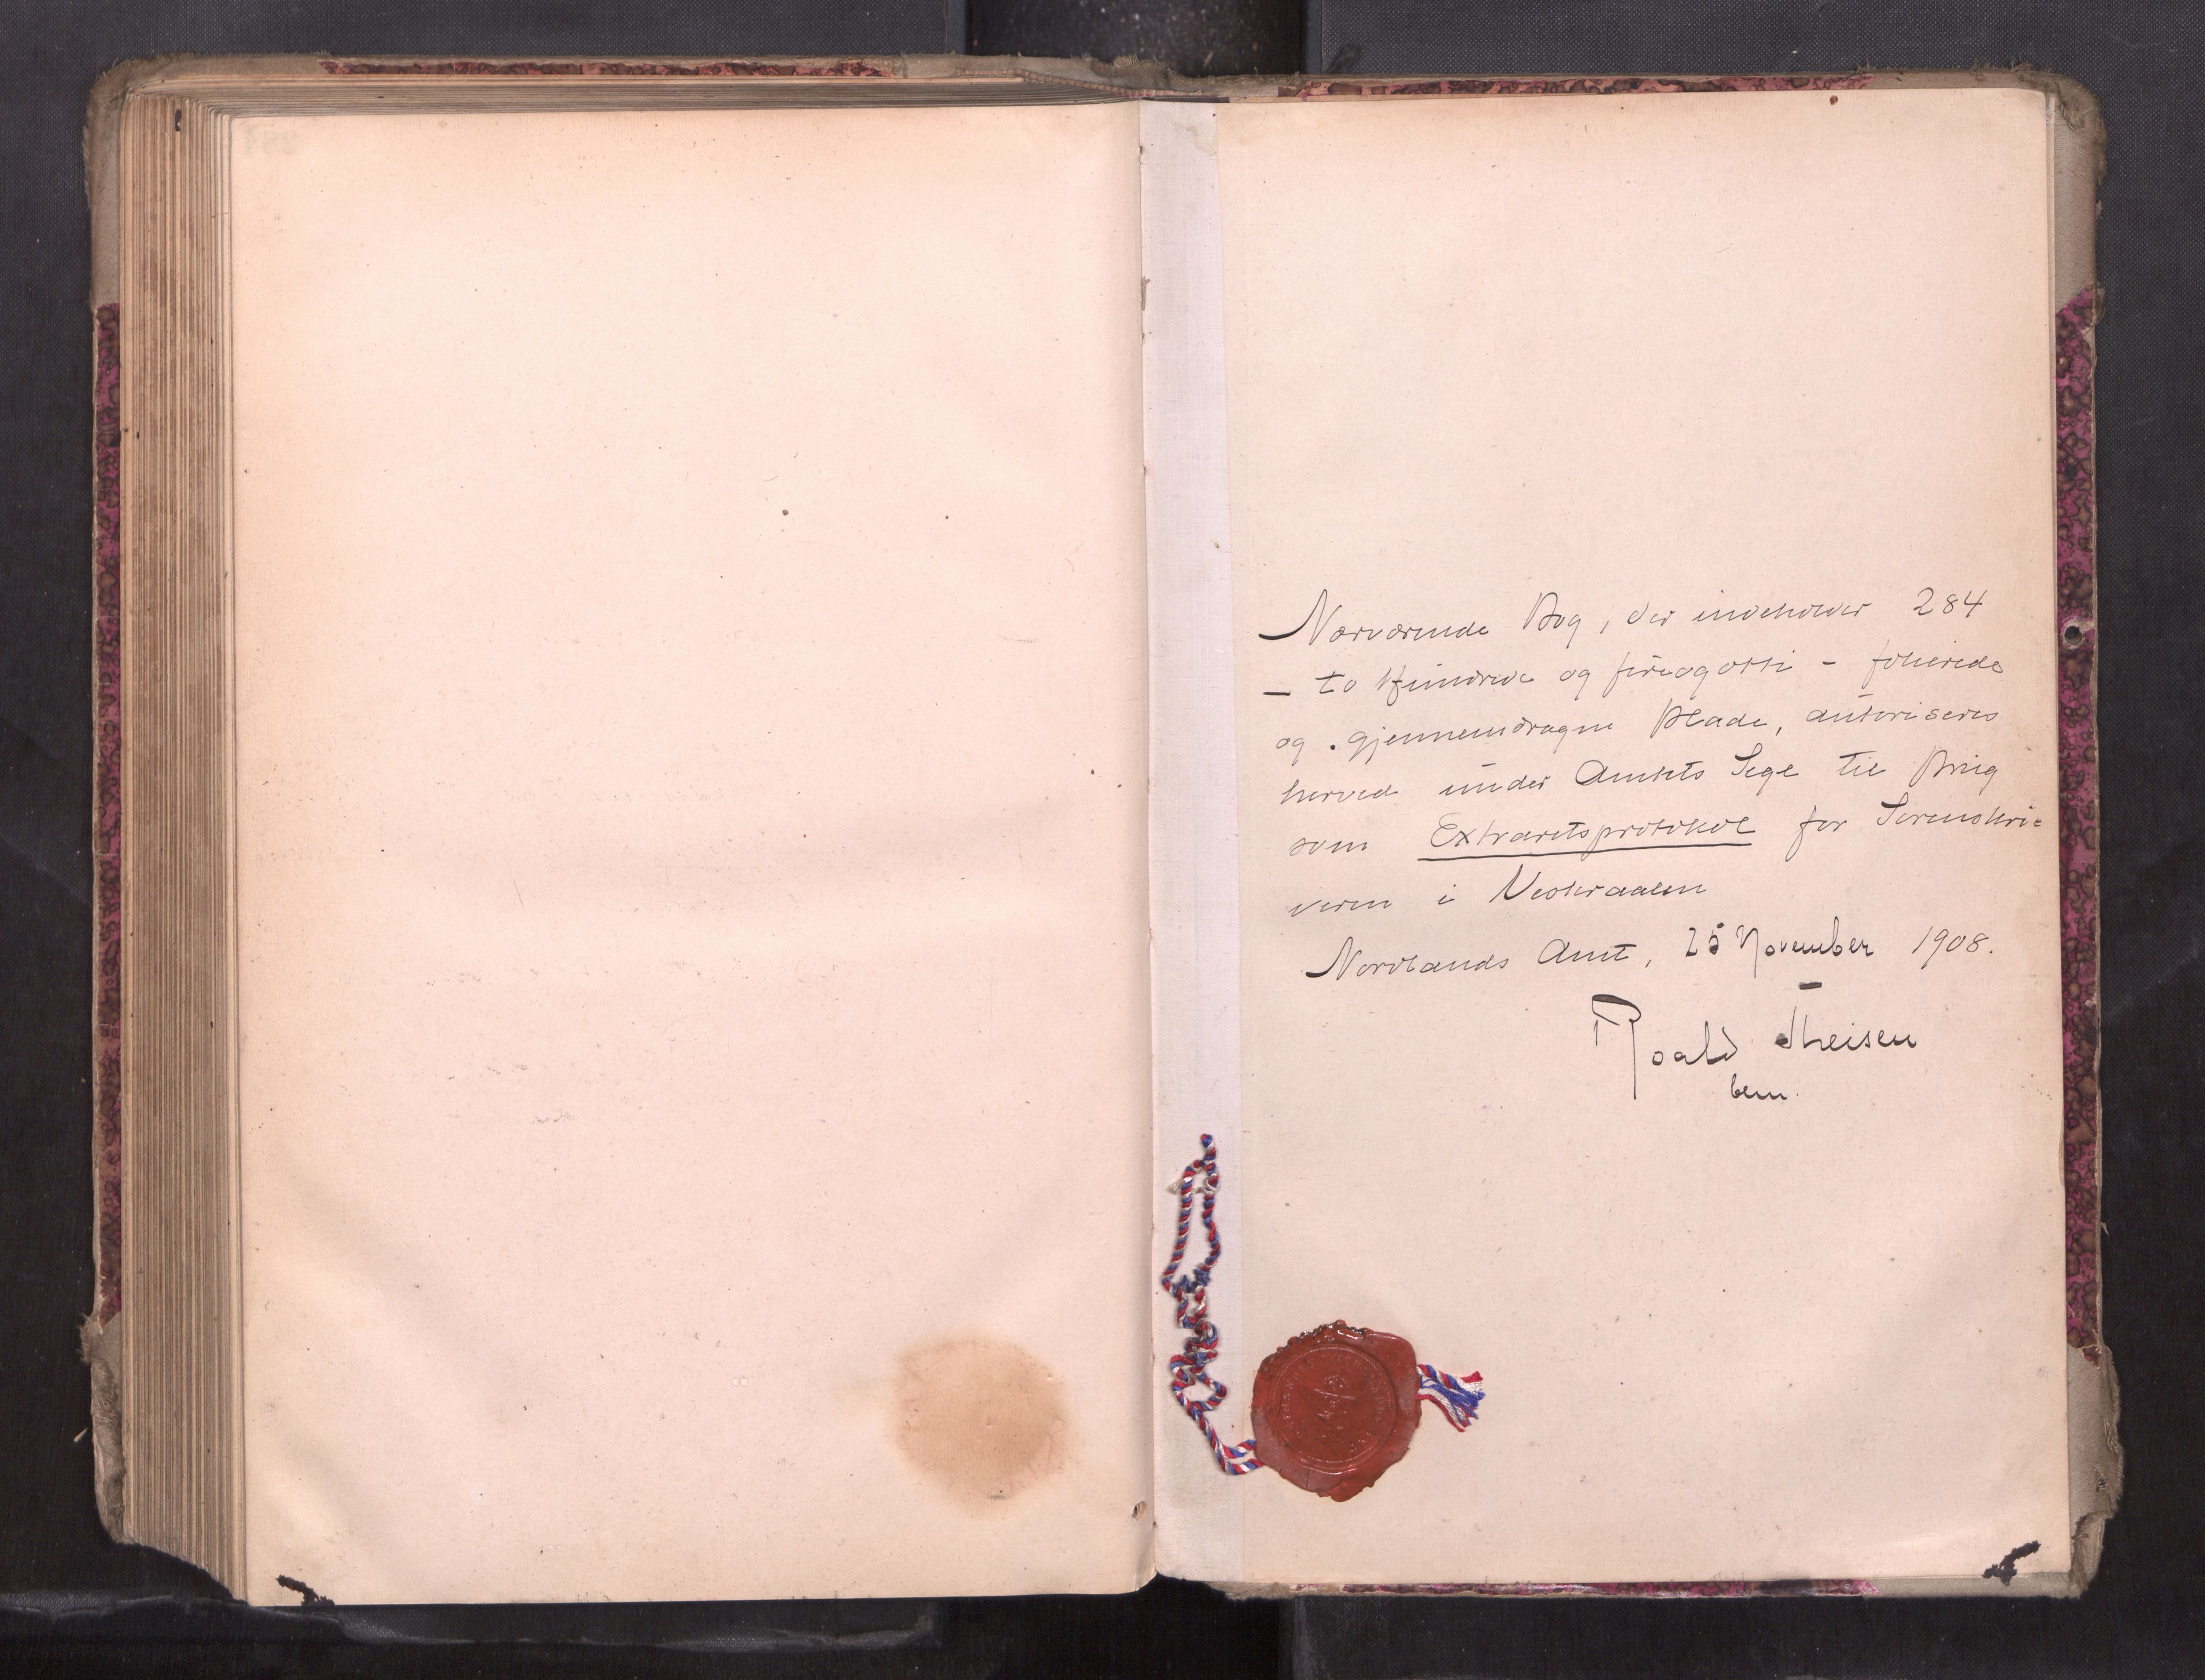 Nærværende Bog, der indeholder 284
– to Hundrede og fireogotti – folierede
og gjennemdragne Blade, autoriseres
herved under Amtets Segl til Brug
som Extraretsprotokol for Sorenskri=
veren i Vesteraalen
Nordlands Amt, 25 November 1908.
Roald Theisen
bem.